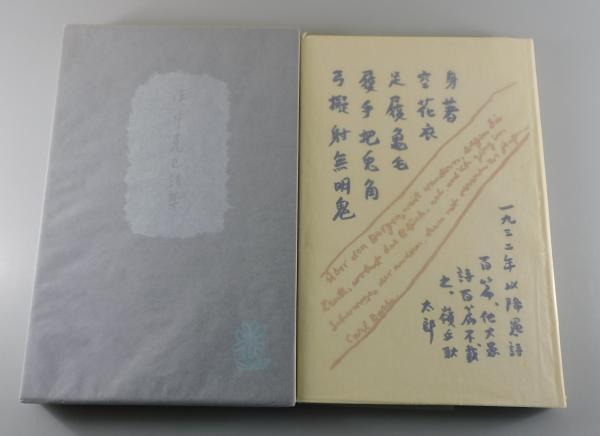 田中克己詩集
身著
空花衣
足履亀毛
履手把兎角
弓擬射無明鬼
Über den Bergen, weit wandern, sagen die
Leute, wohnt das Glück, ach, und ich ging im
Schwarme der andern, kam mit
Carl Busse
一九三二年以降愚詩
百篇、他大愚
詩百篇不載
之、嶺丘耿
太郎